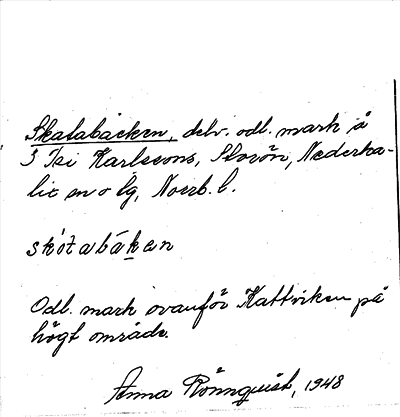 Skatabäcken, delv. odl. mark å
Karlssons, Storön, Nederka-
lix en o lg, Norrb. l.
skòtabäken
Odl. mark ovanför Kattviken på
högt område.
Anna Rönnquist, 1948